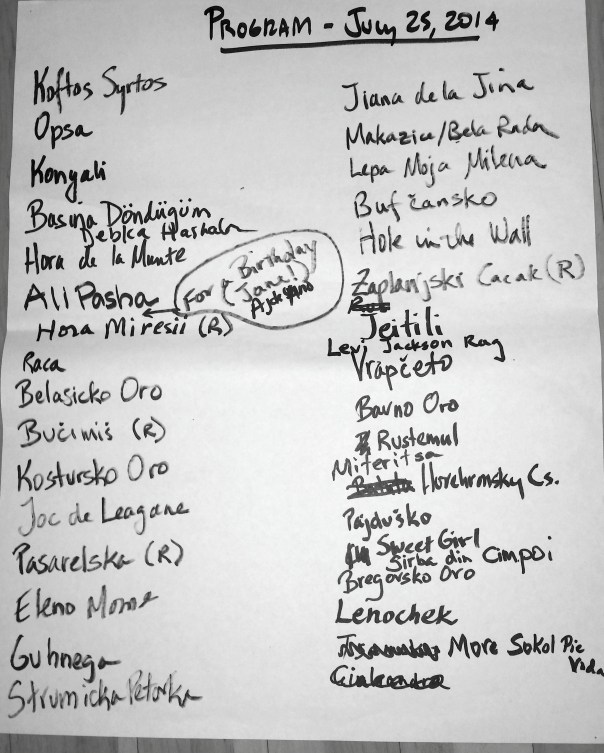 PROGRAM - July 25, 2014
Koftos Syrtos
Opsa
Konyali
Basina Döndügüm
Debka Hashaln
Hora de la Munte
Ali Pasha
For a Birthday
(Jane!)
Hora Miresii (R)
Raca
Belasicko Oro
Bučimiš (R)
Kostursko Oro
Joc de Leagane
Pasarelska (R)
Eleno Mome
Guhnega
Strumicka Petorka
Jiana de la Jina
Makazice/Bela Rada
Lepa Moja Milena
Bufčansko
Hole in the Wall
Zaplanjski Cacak (R)
Jeitili
Levi Jackson Rag
Vrapčeto
Bavno Oro
Rustemul
Miteritsa
Horehronsky Cs.
Pajduško
Sweet Girl
Sirba din Cimpoi
Bregovsko Oro
Lenochek
More Sokol Pie
Voda